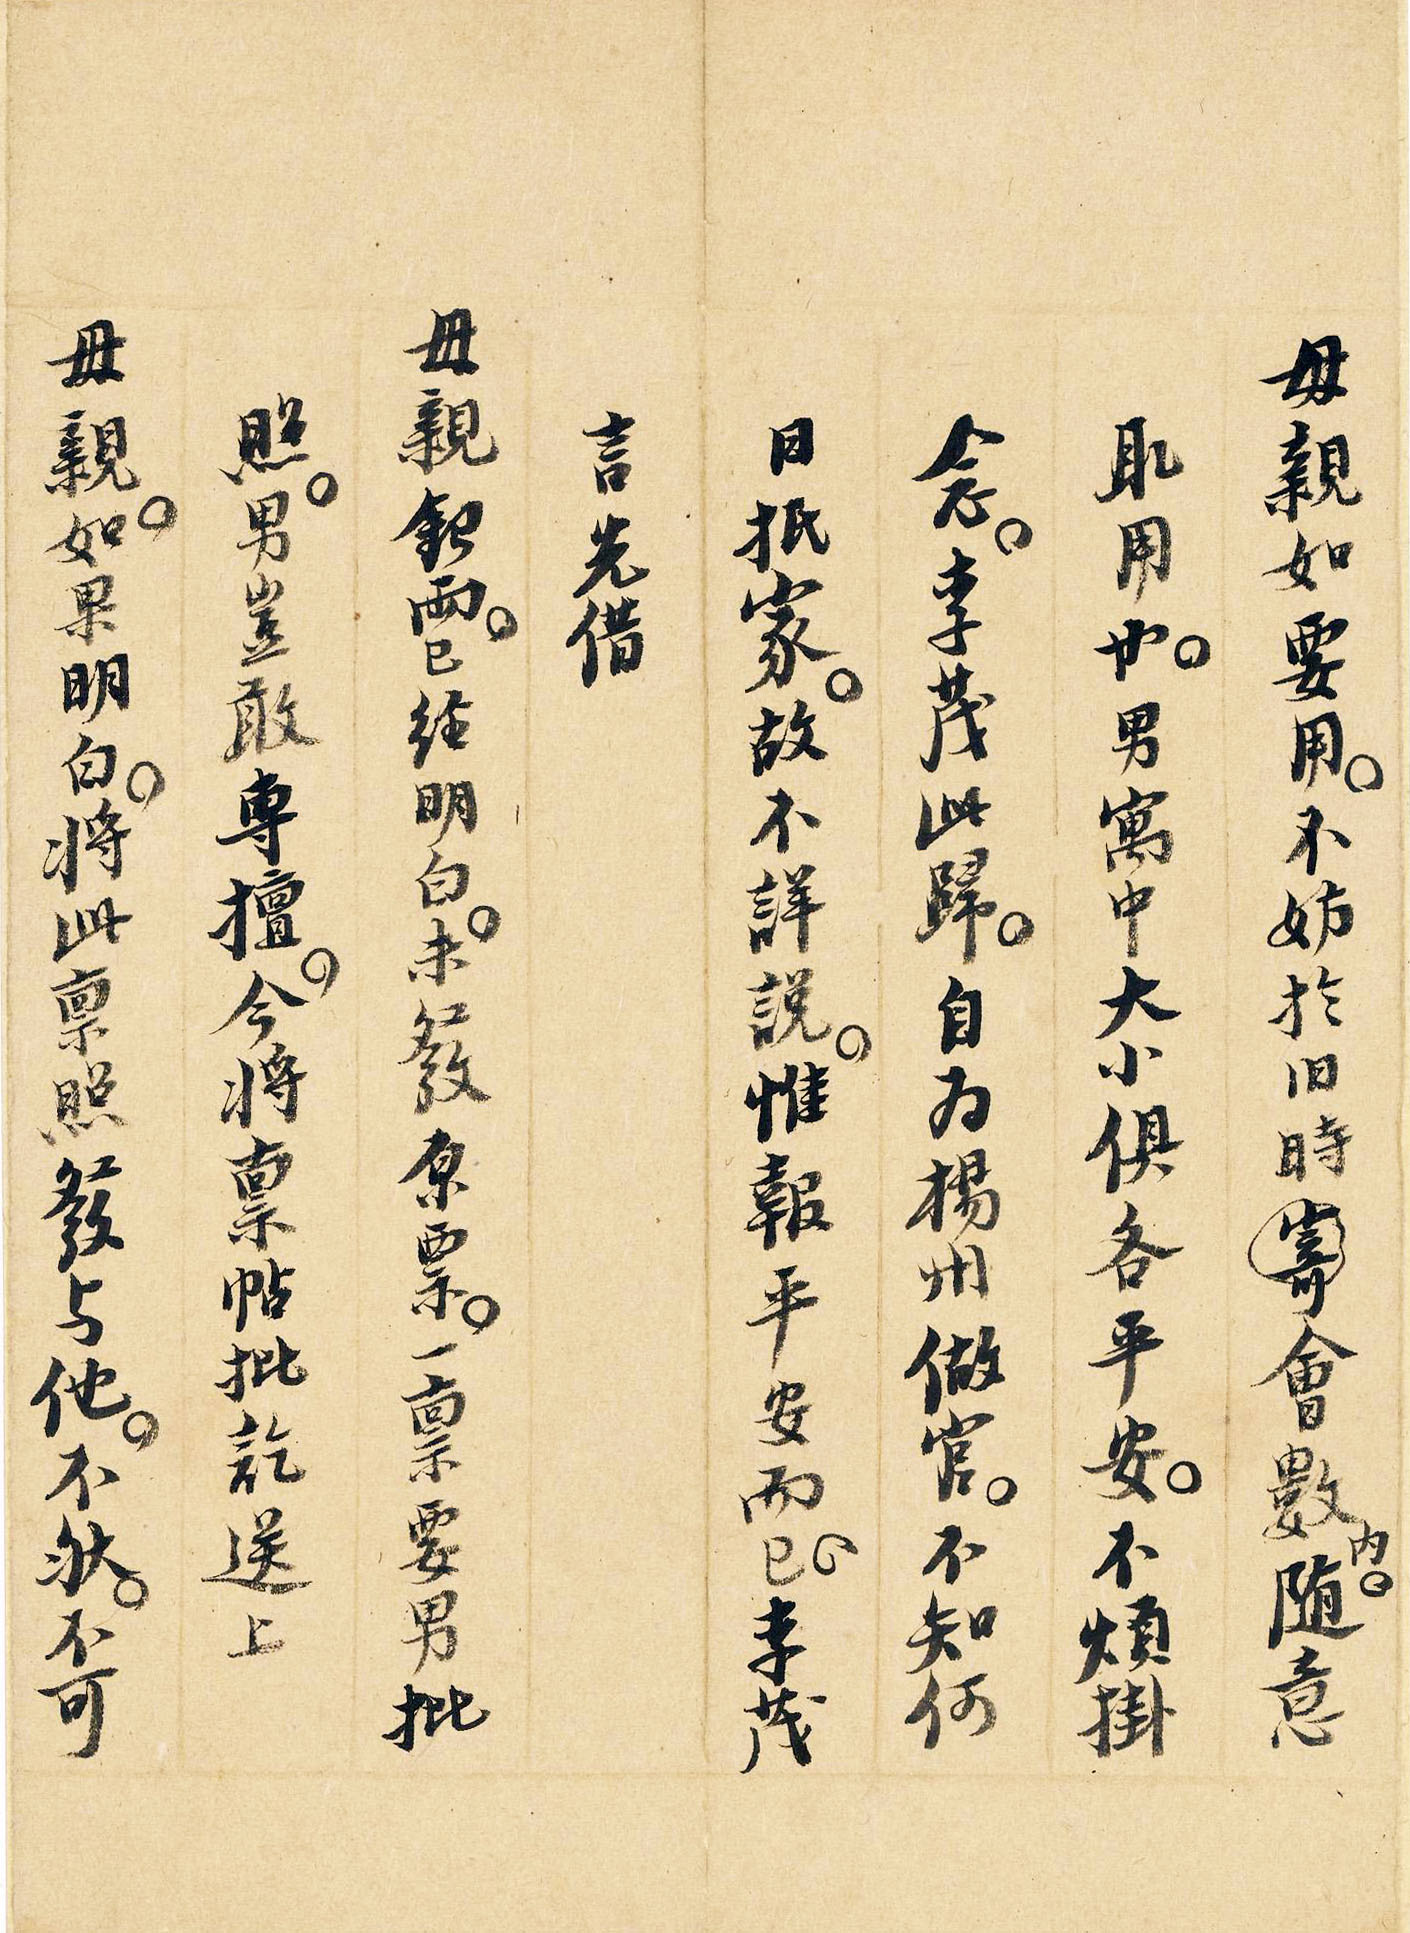 母親如要用。不妨於旧時寄會數内。随意
取用也。男寓中大小俱各平安。不煩掛
念。李茂此歸。自为楊州做官。不知何
日抵家。故不詳説。惟報平安而已。李茂
言先借
母親銀両。已経明白。未發原票。一禀要男批
照。男豈敢専擅。今将禀帖批訖送上
母親。如果明白。将此禀照發与他。不然。不可